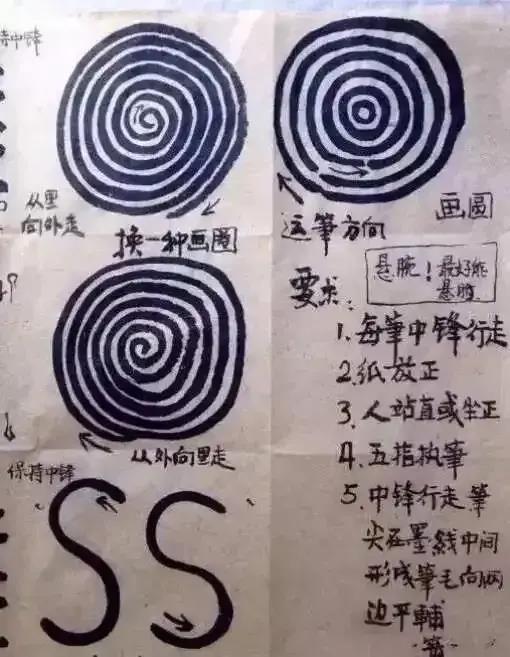 持中锋
从里
向外走
换一种画圈
运笔方向
画圆
悬腕！最好能
悬肘
要求：
1.每筆中锋行走
2.纸放正
3.人站直或坐正
4.五指执筆
5.中锋行走筆
尖在墨线中间
形成筆毛向两
边平輔
从外向里走
保持中锋
SS